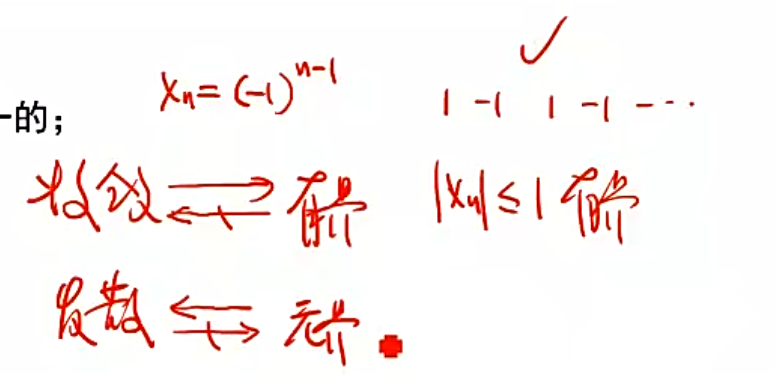 xₙ=(-1)ⁿ⁻¹ 1 -1 1 -1 ----
一的；
收敛 ⇄ 有界 |xₙ|≤1 有界
发散 ⇆ 无界